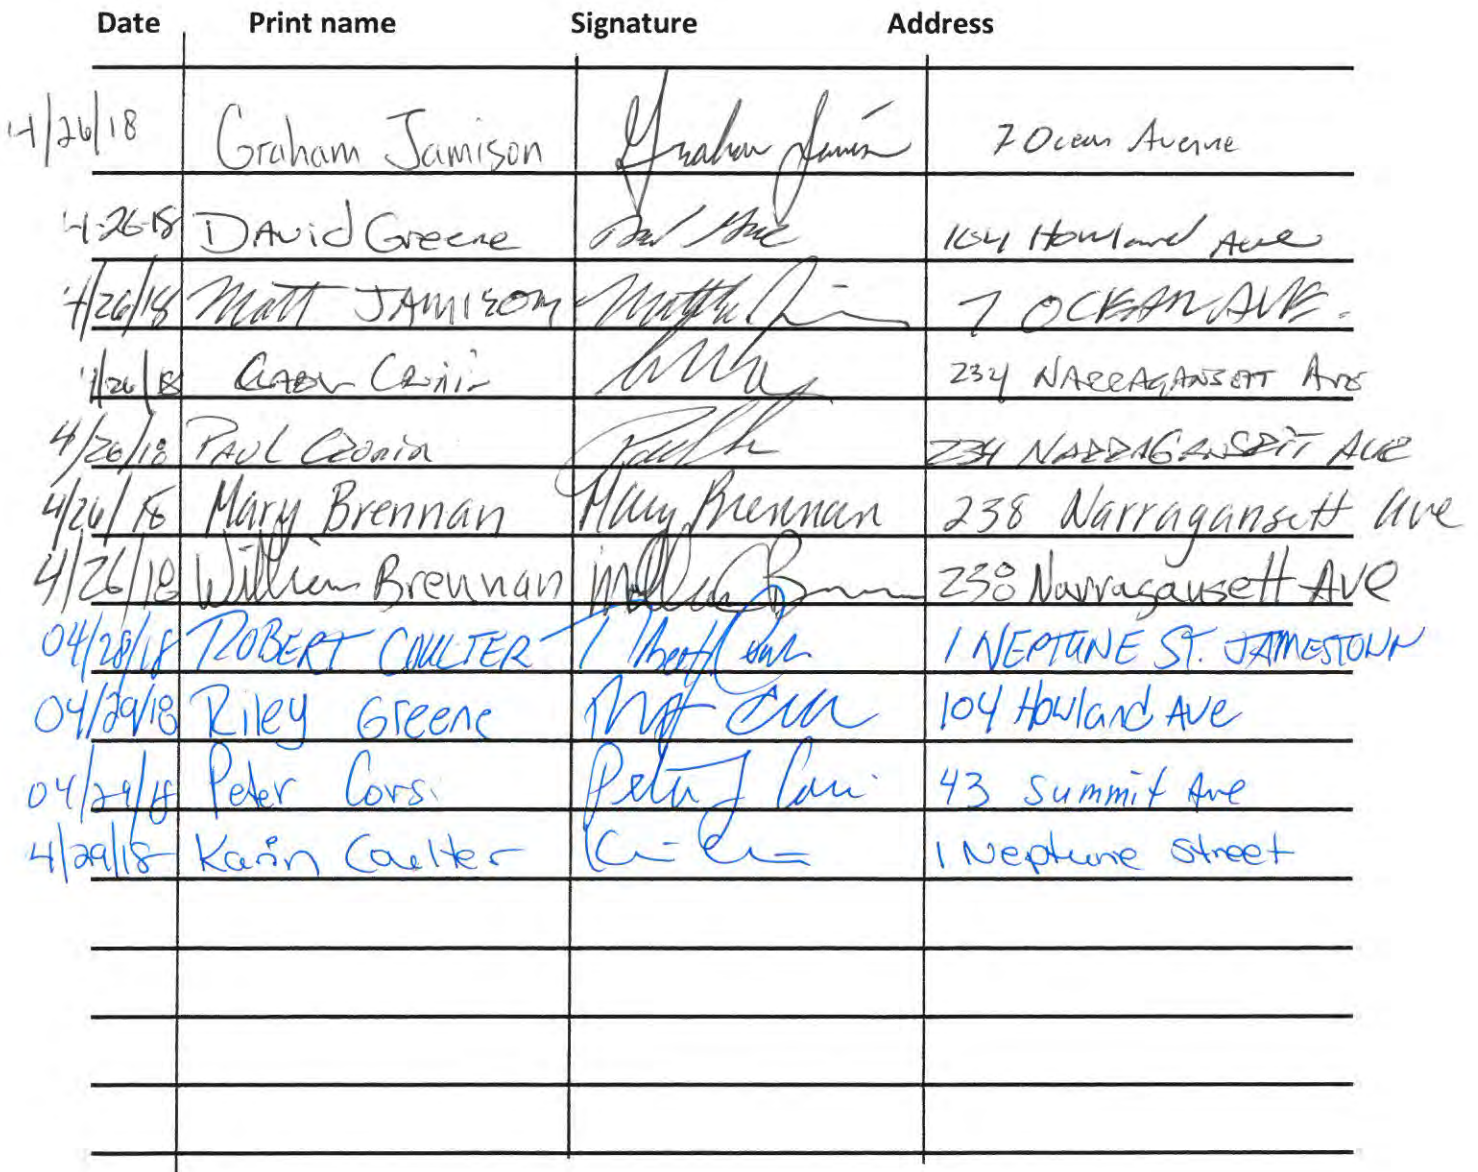 Date Print name Signature Address
4/26/18 Graham Jamison Graham Jamison 7 Ocean Avenue
4-26-18 DAvid Greene 104 Howland Ave
4/26/18 Matt JAMISON 7 OCEAN AVE.
4/26/18 Cronin 234 NARRAGANSETT Ave
4/26/18 PAUL Cronin 234 NARRAGANSETT AVE
4/26/18 Mary Brennan Mary Brennan 238 Narragansett Ave
4/26/18 William Brennan 238 Narragansett AVE
04/28/18 ROBERT COULTER 1 NEPTUNE ST. JAMESTOWN
04/29/18 Riley Greene 104 Howland Ave
04/29/18 Peter Corsi Peter J Corsi 43 Summit Ave
4/29/18 Karin Coulter 1 Neptune Street